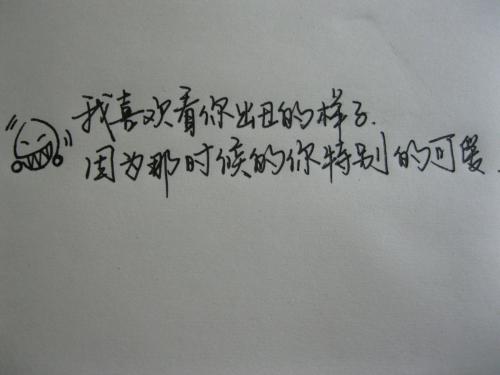 我喜欢看你出丑的样子.
因为那时候的你特别的可爱.